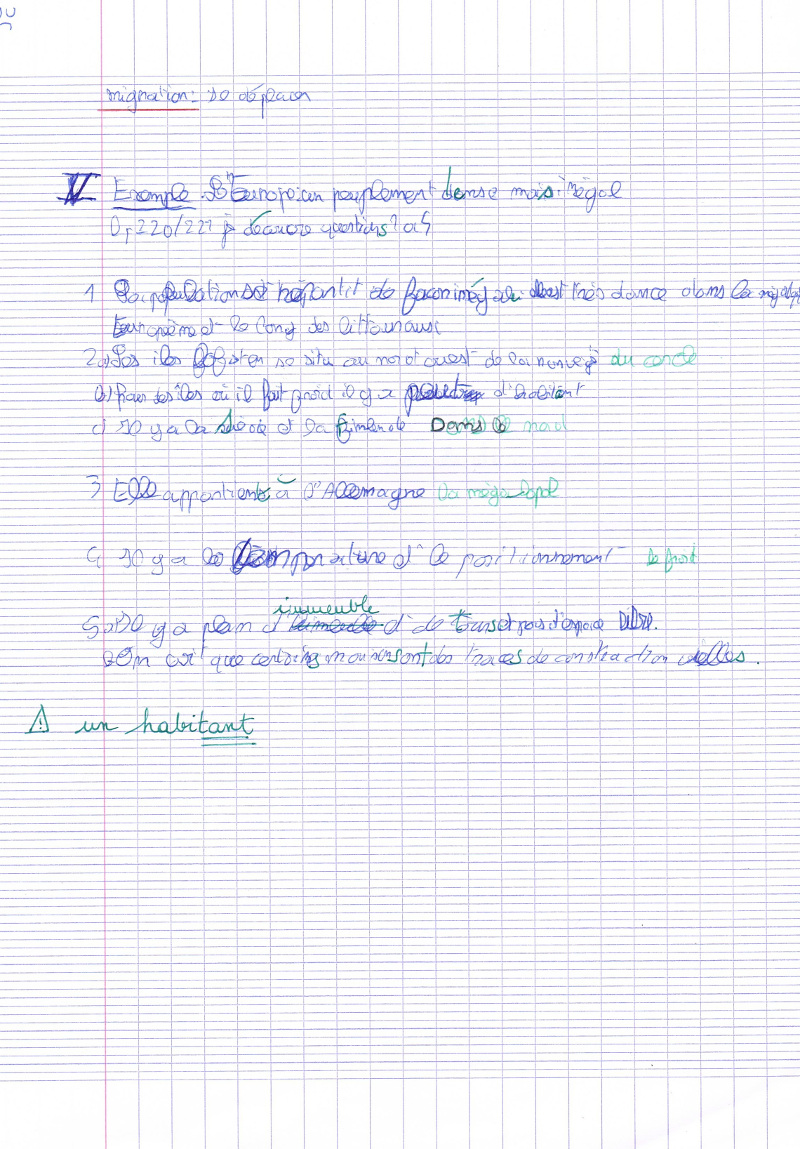 migration: se déplacer
V Exemple L'Europe: un peuplement dense mais inégal
D p 220/221 je découvre questions 1 à 5
1 La population se répartit de façon inégale est très dance dans la
Européenne et le long des littauraux
2 a) Les îles Lofoten se situ au nord ouest de la norvège du cercle
b) Pour des îles où il fait froid il y a d'habitant
c) Il y a la Suède et la Finlende Dans le nord
3 Elle appartient à l'Allemagne la mégalopole
4 Il y a la température et le positionnement le froid
immeuble
5 a) Il y a plein d' et de et pas d'espace libre.
b) On voit que certains sont des traces de construction vielles.
⚠ un habitant